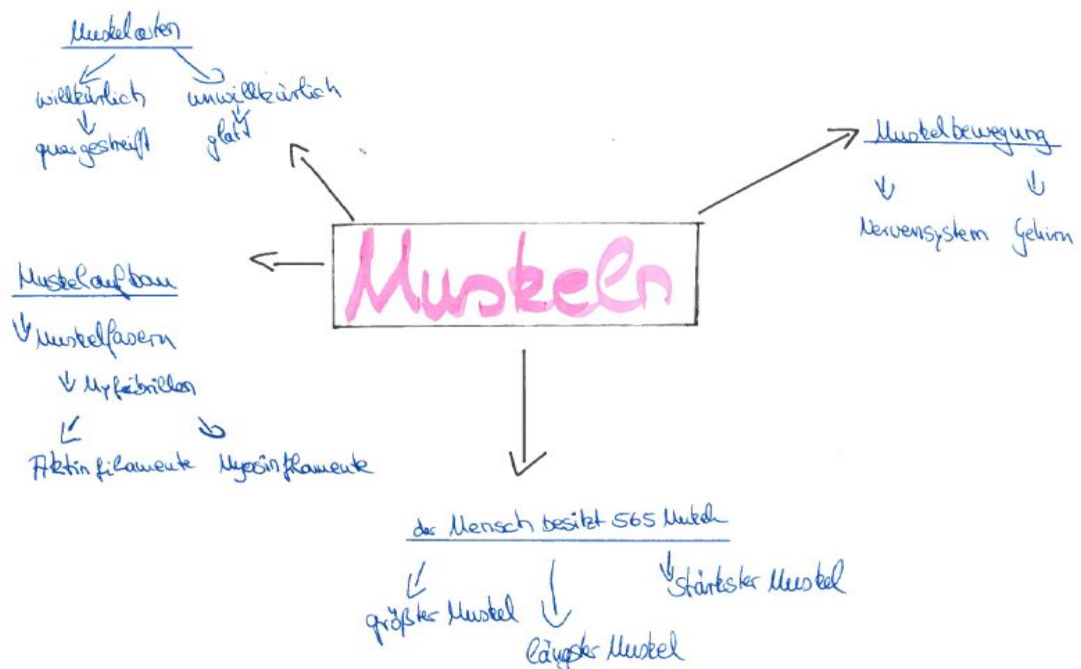 Muskelarten
willkürlich unwillkürlich
quergestreift glatt
Muskelbewegung
Nervensystem Gehirn
Muskeln
Muskelaufbau
Muskelfasern
Myfibrillen
Aktinfilamente Myosinfilamente
der Mensch besitzt 565 Muskeln
größter Muskel
längster Muskel
stärkster Muskel